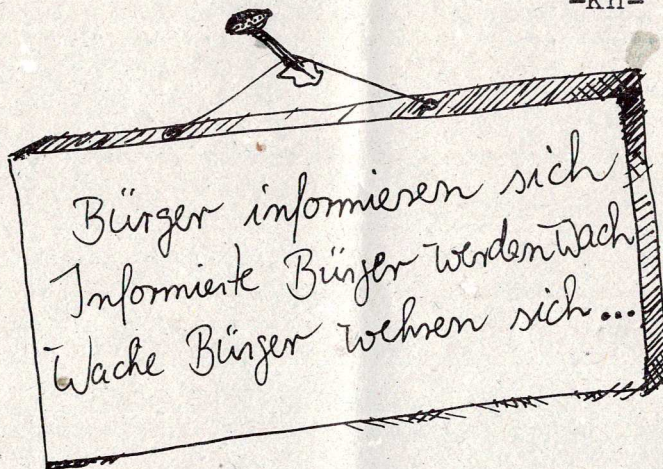 -kh-
Bürger informieren sich
Informierte Bürger werden wach
Wache Bürger wehren sich...